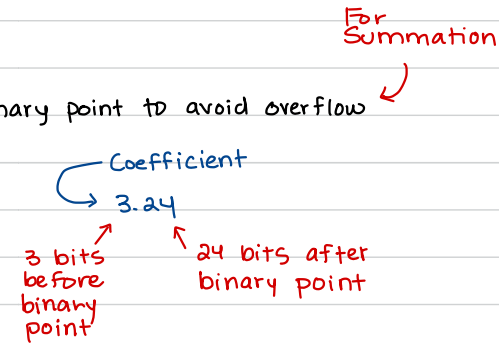 For
Summation
nary point to avoid overflow
Coefficient
3.24
3 bits
before
binary
point
24 bits after
binary point